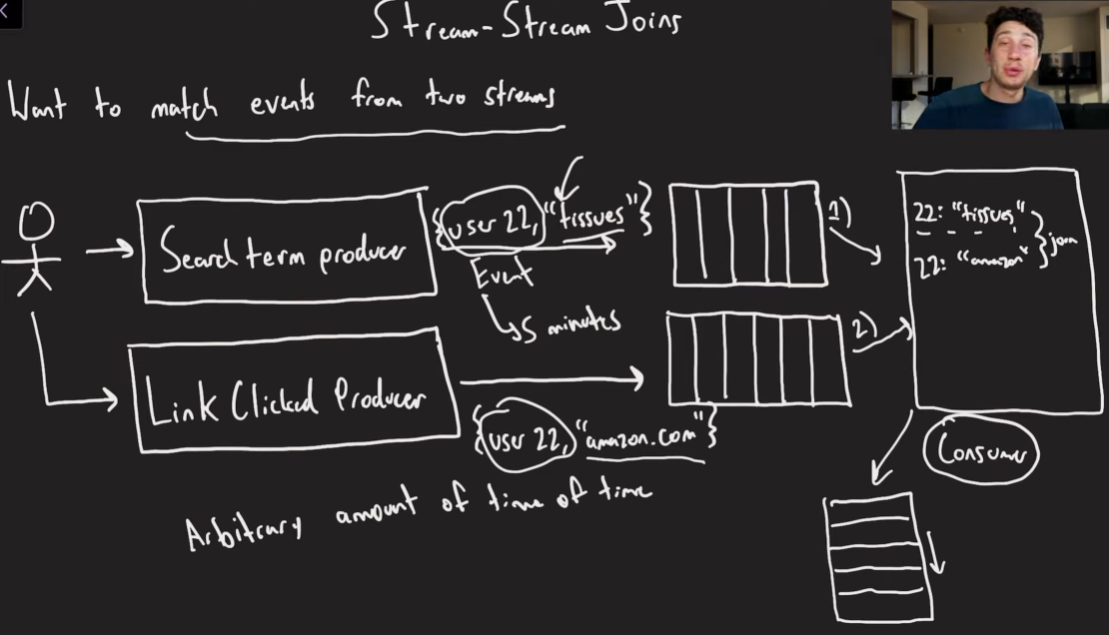 Stream-Stream Joins
Want to match events from two streams
Search term producer
{user 22, "tissues"}
Event
5 minutes
1)
22: "tissues"
22: "amazon"
join
Link Clicked Producer
{user 22, "amazon.com"}
2)
Consumer
Arbitrary amount of time of time